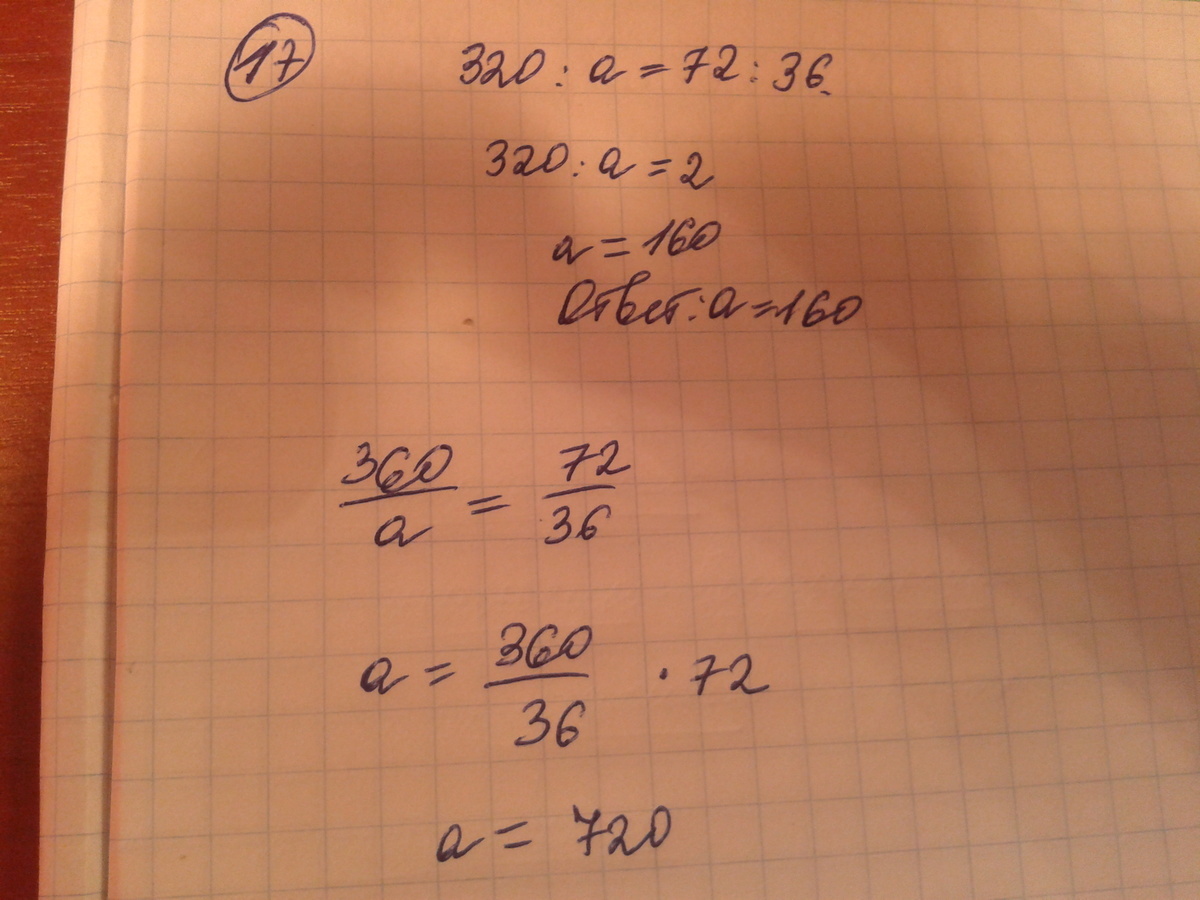 17 320 : a = 72 : 36
320 : a = 2
a = 160
Ответ: a = 160
360/a = 72/36
a = 360/36 · 72
a = 720